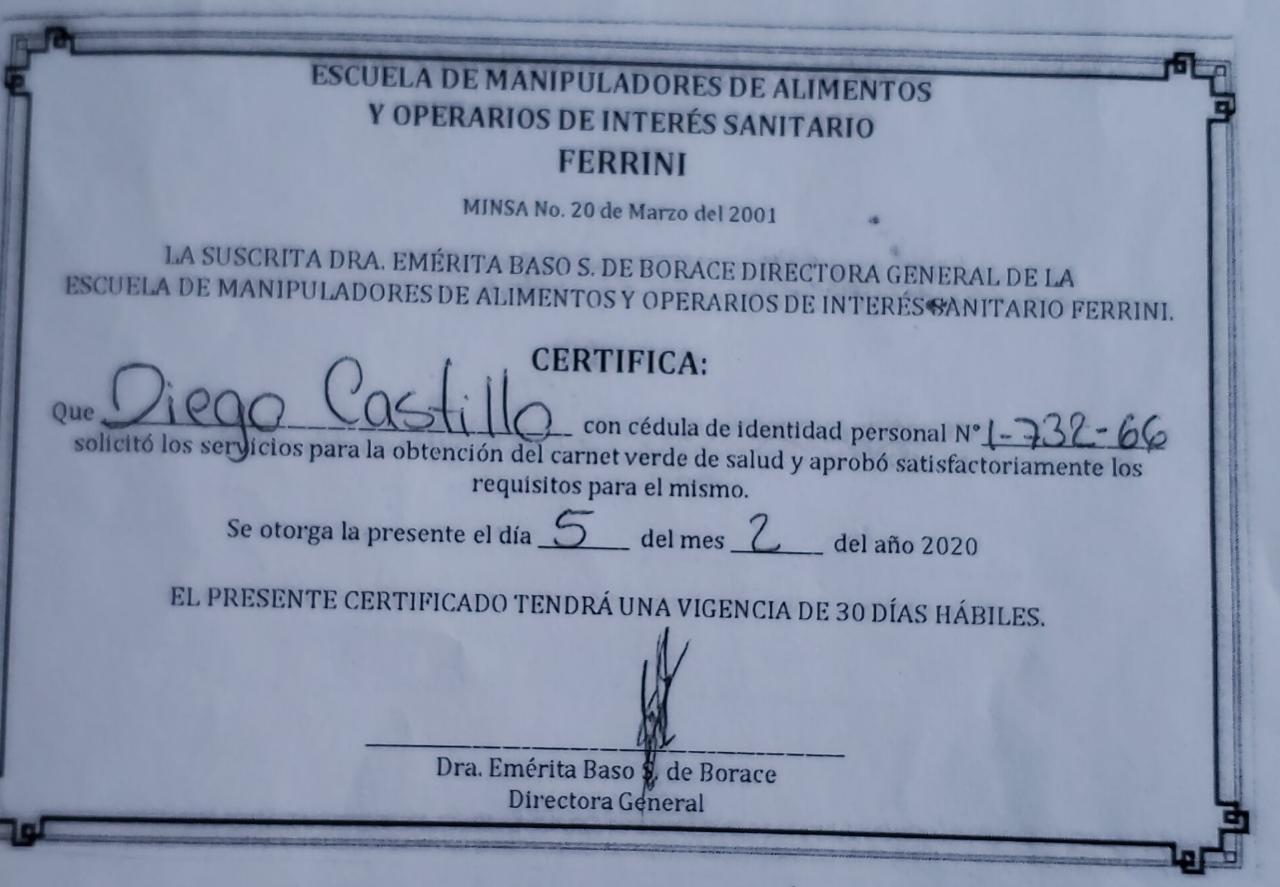 ESCUELA DE MANIPULADORES DE ALIMENTOS
Y OPERARIOS DE INTERÉS SANITARIO
FERRINI
MINSA No. 20 de Marzo del 2001
LA SUSCRITA DRA. EMÉRITA BASO S. DE BORACE DIRECTORA GENERAL DE LA
ESCUELA DE MANIPULADORES DE ALIMENTOS Y OPERARIOS DE INTERÉS SANITARIO FERRINI.
CERTIFICA:
Que Diego Castillo con cédula de identidad personal N° 1-732-66
solicitó los servicios para la obtención del carnet verde de salud y aprobó satisfactoriamente los
requisitos para el mismo.
Se otorga la presente el día 5 del mes 2 del año 2020
EL PRESENTE CERTIFICADO TENDRÁ UNA VIGENCIA DE 30 DÍAS HÁBILES.
Dra. Emérita Baso S. de Borace
Directora General